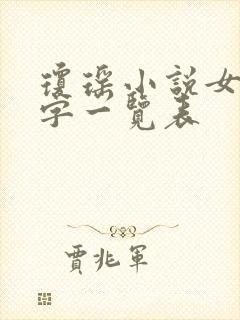 瓊瑤小說女
字一覽表
賈兆軍